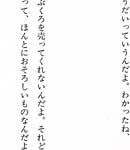 うだいっていうんだよ。わかったね、
ぶくろを売ってくれないんだよ。それど
って、ほんとにおそろしいものなんだよ